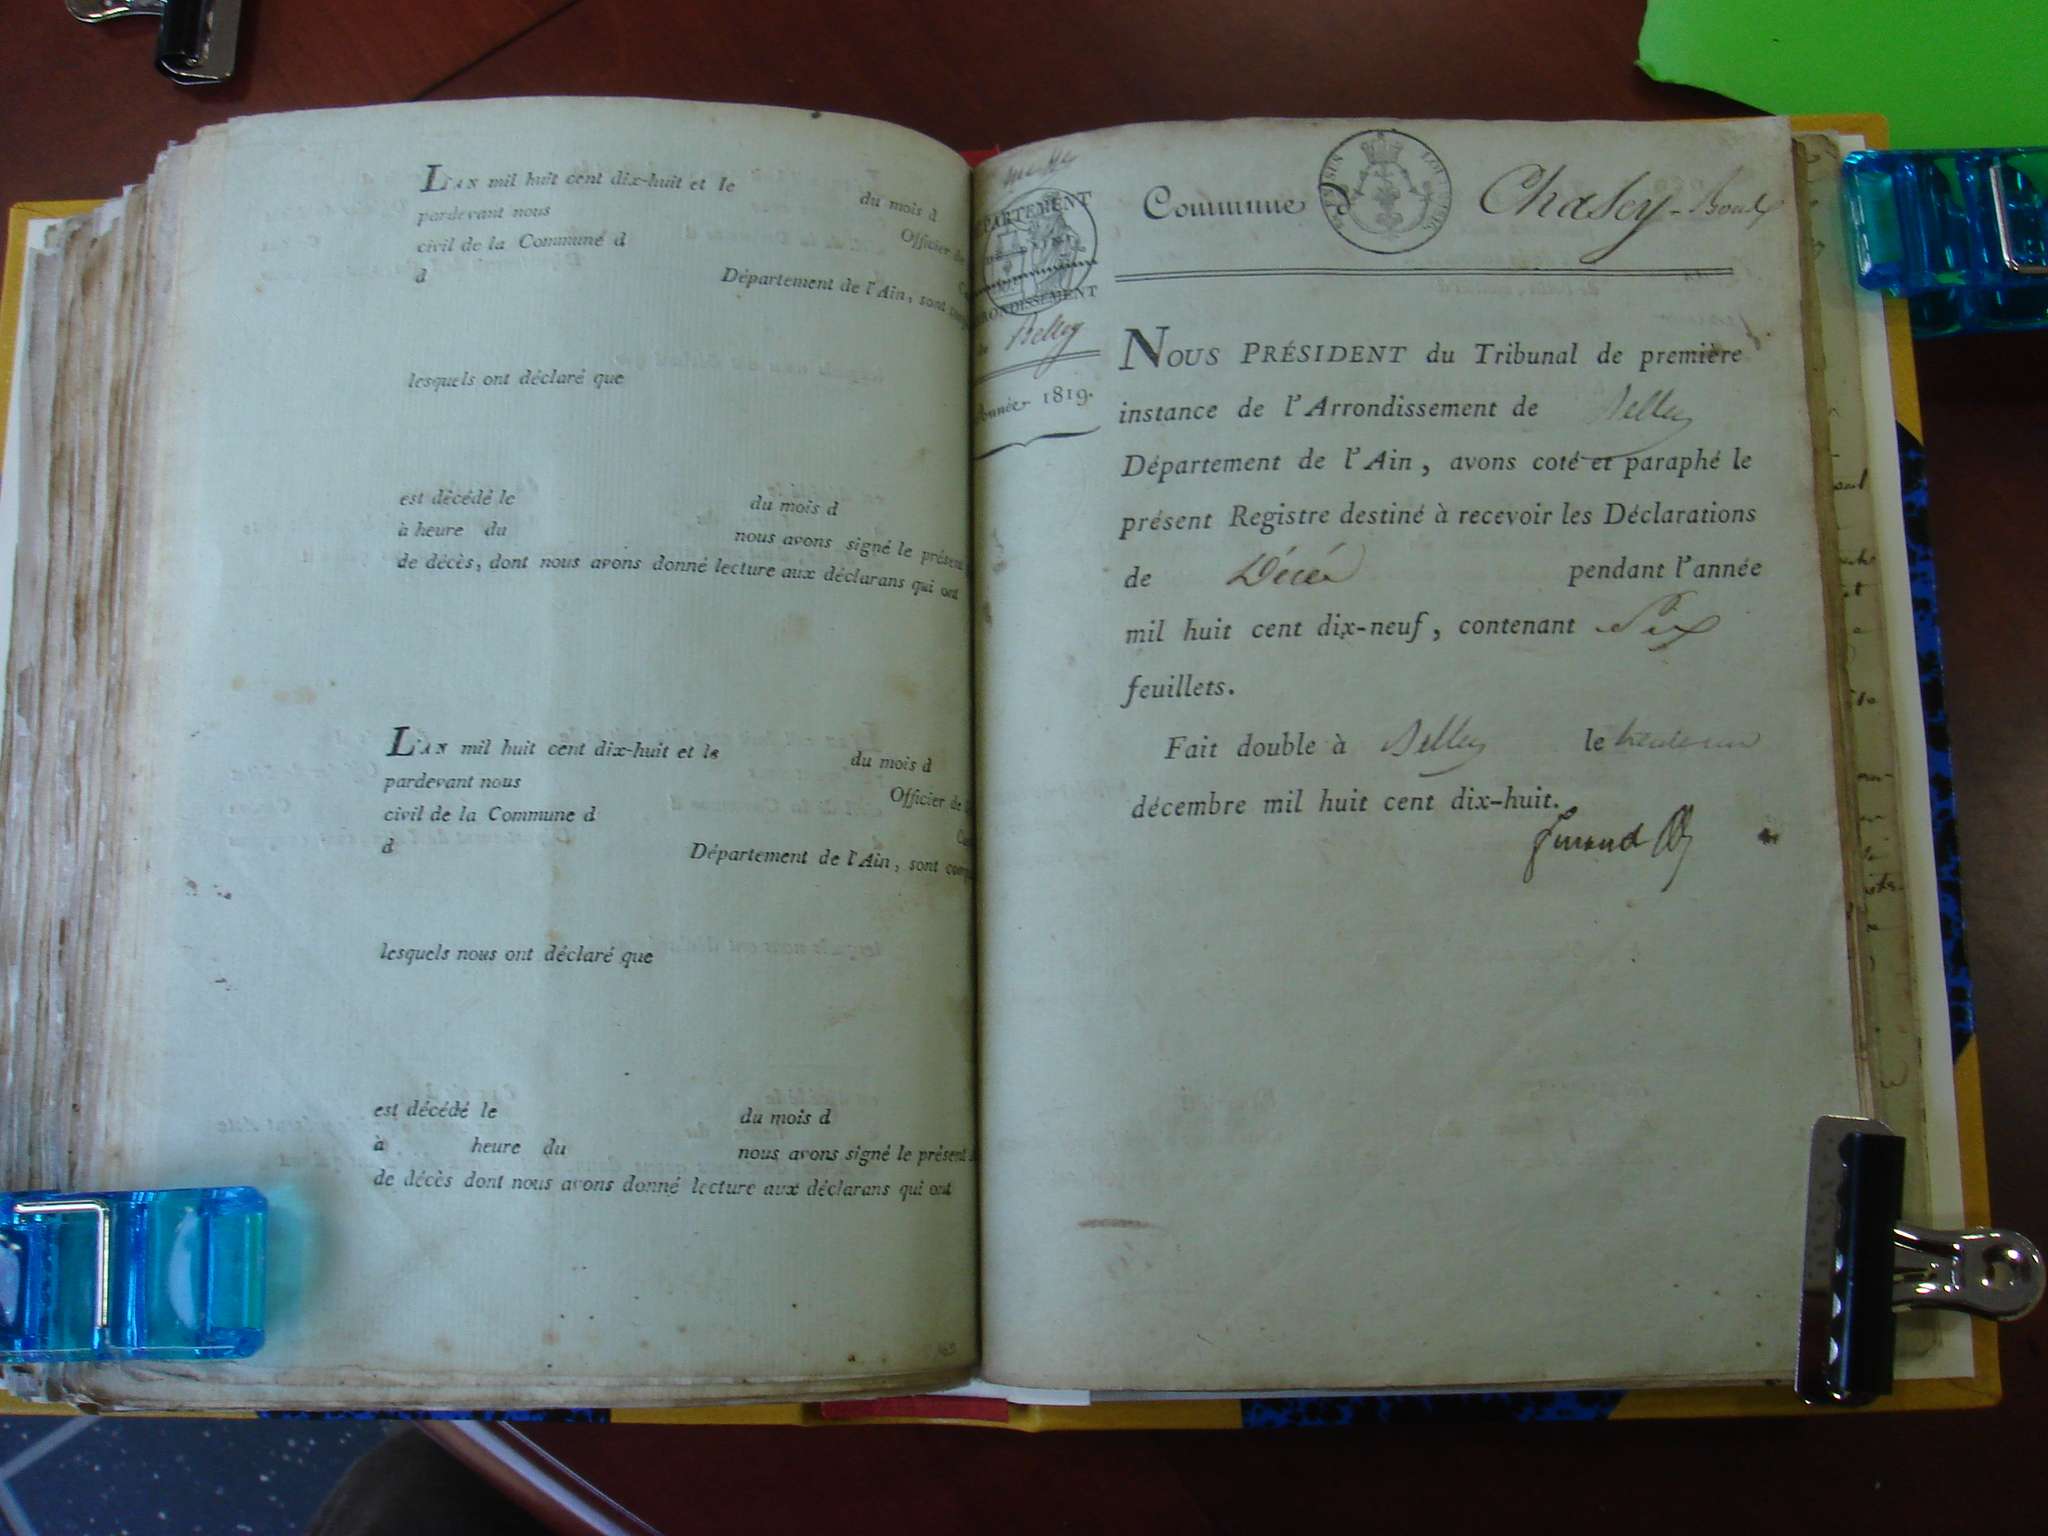 L'AN mil huit cent dix-huit et le du mois d
pardevant nous Officier de
civil de la Commune d
d Département de l'Ain, sont
lesquels ont déclaré que
est décédé le du mois d
à heure du nous avons signé le présent
de décès, dont nous avons donné lecture aux déclarans qui ont
L'AN mil huit cent dix-huit et le du mois d
pardevant nous Officier de
civil de la Commune d
d Département de l'Ain, sont
lesquels nous ont déclaré que
est décédé le du mois d
à heure du nous avons signé le présent
de décès dont nous avons donné lecture aux déclarans qui ont
DÉPARTEMENT
ARRONDISSEMENT
de Belley
Année 1819.
Commune Chasey-Bons
NOUS PRÉSIDENT du Tribunal de première
instance de l'Arrondissement de Belley
Département de l'Ain, avons coté et paraphé le
présent Registre destiné à recevoir les Déclarations
de Décès pendant l'année
mil huit cent dix-neuf, contenant Six
feuillets.
Fait double à Belley le
décembre mil huit cent dix-huit.